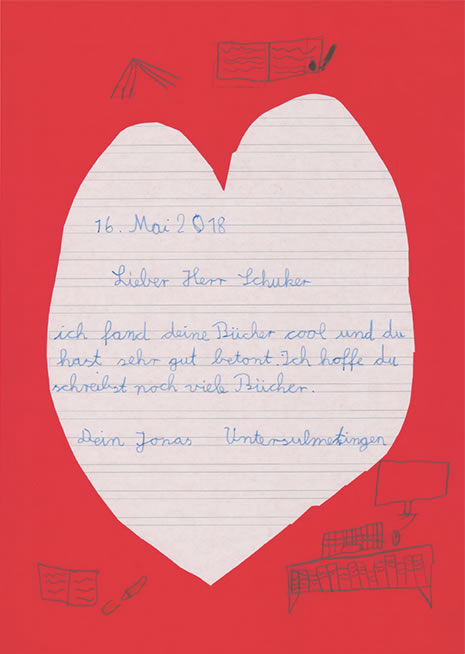 16. Mai 2018
Lieber Herr Schuker
ich fand deine Bücher cool und du
hast sehr gut betont. Ich hoffe du
schreibst noch viele Bücher.
Dein Jonas Untersulmetingen